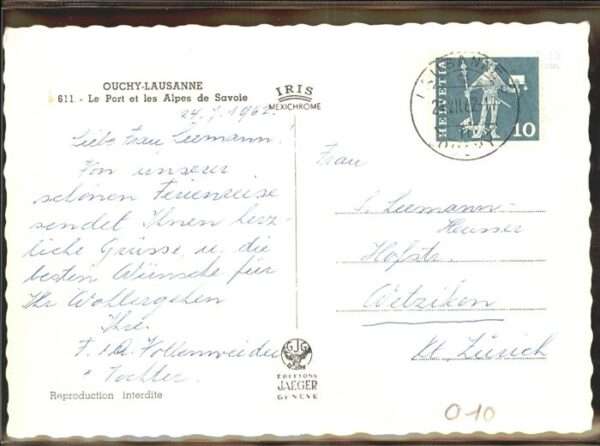 OUCHY-LAUSANNE
611. - Le Port et les Alpes de Savoie
IRIS
MEXICHROME
HELVETIA
10
LAUSANNE
OUCHY
24. 7. 1962.
Liebe Frau Leemann!
Von unserer
schönen Ferienreise
sendet Ihnen herz-
liche Grüsse u. die
besten Wünsche für
Ihr Wohlergehen
Ihre
F. & A. Vollenweider
& Tochter.
Frau
Leemann-
Hauser
Hofstr.
Wetzikon
Kt. Zürich
GJG
EDITIONS
JAEGER
GENEVE
Reproduction interdite
010